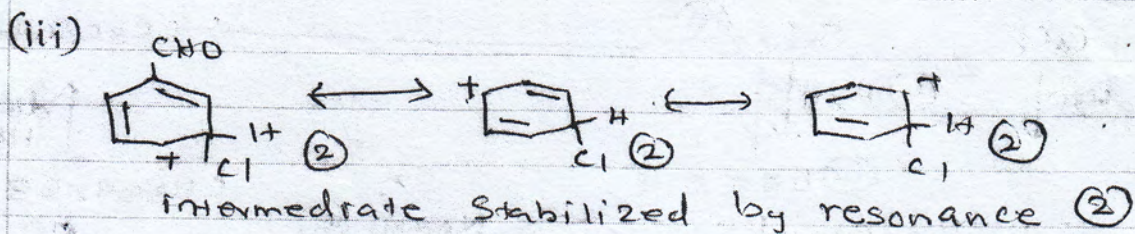 (iii)
CHO
+ +
H ② H ② H ②
+ Cl Cl Cl
intermediate stabilized by resonance ②